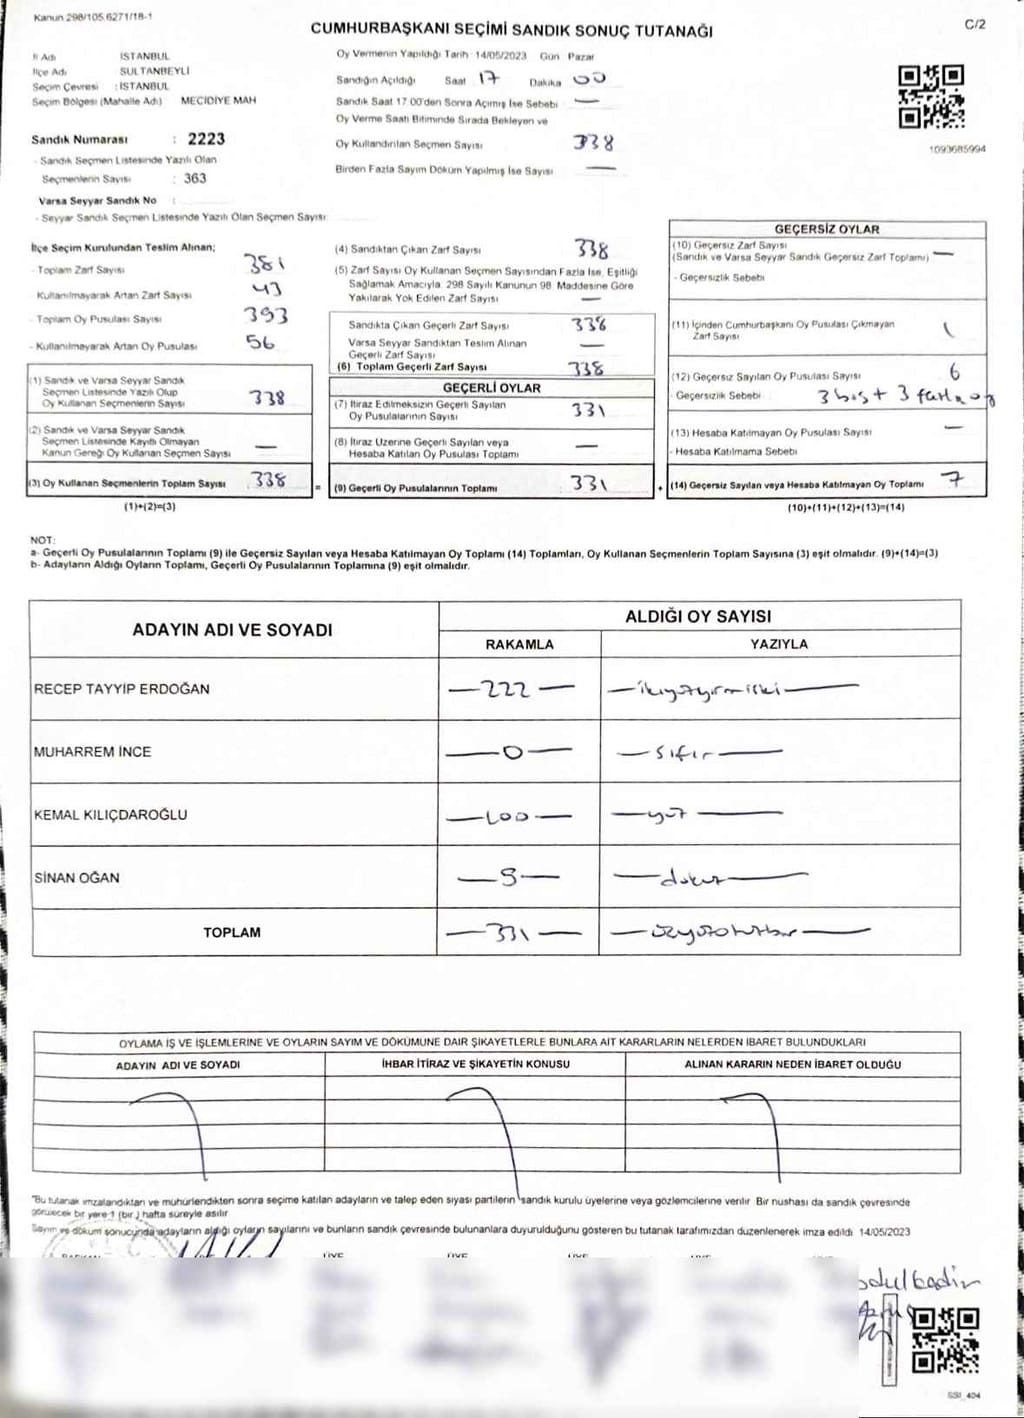 Kanun 298/105.6271/18-1
CUMHURBAŞKANI SEÇİMİ SANDIK SONUÇ TUTANAĞI
C/2
İl Adı İSTANBUL
İlçe Adı SULTANBEYLİ
Seçim Çevresi : İSTANBUL
Seçim Bölgesi (Mahalle Adı) MECİDİYE MAH
Sandık Numarası : 2223
- Sandık Seçmen Listesinde Yazılı Olan
Seçmenlerin Sayısı : 363
Varsa Seyyar Sandık No :
- Seyyar Sandık Seçmen Listesinde Yazılı Olan Seçmen Sayısı
Oy Vermenin Yapıldığı Tarih 14/05/2023 Gün Pazar
Sandığın Açıldığı Saat 17 Dakika 00
Sandık Saat 17 00'den Sonra Açımış İse Sebebi —
Oy Verme Saati Bitiminde Sırada Bekleyen ve
Oy Kullandırılan Seçmen Sayısı 338
Birden Fazla Sayım Döküm Yapılmış İse Sayısı —
1093685994
İlçe Seçim Kurulundan Teslim Alınan;
- Toplam Zarf Sayısı 381
- Kullanılmayarak Artan Zarf Sayısı 43
- Toplam Oy Pusulası Sayısı 393
- Kullanılmayarak Artan Oy Pusulası 56
(1) Sandık ve Varsa Seyyar Sandık
Seçmen Listesinde Yazılı Olup
Oy Kullanan Seçmenlerin Sayısı 338
(2) Sandık ve Varsa Seyyar Sandık
Seçmen Listesinde Kayıtlı Olmayan
Kanun Gereği Oy Kullanan Seçmen Sayısı —
(3) Oy Kullanan Seçmenlerin Toplam Sayısı 338
(1)+(2)=(3)
=
(4) Sandıktan Çıkan Zarf Sayısı 338
(5) Zarf Sayısı Oy Kullanan Seçmen Sayısından Fazla İse, Eşitliği
Sağlamak Amacıyla 298 Sayılı Kanunun 98 Maddesine Göre
Yakılarak Yok Edilen Zarf Sayısı —
Sandıkta Çıkan Geçerli Zarf Sayısı 338
Varsa Seyyar Sandıktan Teslim Alınan
Geçerli Zarf Sayısı —
(6) Toplam Geçerli Zarf Sayısı 338
GEÇERLİ OYLAR
(7) İtiraz Edilmeksizin Geçerli Sayılan
Oy Pusulalarının Sayısı 331
(8) İtiraz Üzerine Geçerli Sayılan veya
Hesaba Katılan Oy Pusulası Toplamı —
(9) Geçerli Oy Pusulalarının Toplamı 331
+
GEÇERSİZ OYLAR
(10) Geçersiz Zarf Sayısı
(Sandık ve Varsa Seyyar Sandık Geçersiz Zarf Toplamı) —
- Geçersizlik Sebebi
(11) İçinden Cumhurbaşkanı Oy Pusulası Çıkmayan
Zarf Sayısı 1
(12) Geçersiz Sayılan Oy Pusulası Sayısı 6
- Geçersizlik Sebebi 3 boş + 3 fazla oy
(13) Hesaba Katılmayan Oy Pusulası Sayısı —
- Hesaba Katılmama Sebebi
(14) Geçersiz Sayılan veya Hesaba Katılmayan Oy Toplamı 7
(10)+(11)+(12)+(13)=(14)
NOT:
a- Geçerli Oy Pusulalarının Toplamı (9) ile Geçersiz Sayılan veya Hesaba Katılmayan Oy Toplamı (14) Toplamları, Oy Kullanan Seçmenlerin Toplam Sayısına (3) eşit olmalıdır. (9)+(14)=(3)
b- Adayların Aldığı Oyların Toplamı, Geçerli Oy Pusulalarının Toplamına (9) eşit olmalıdır.
ADAYIN ADI VE SOYADI
ALDIĞI OY SAYISI
RAKAMLA YAZIYLA
RECEP TAYYİP ERDOĞAN —222— —ikiyüzyirmiiki—
MUHARREM İNCE —0— —sıfır—
KEMAL KILIÇDAROĞLU —100— —yüz—
SİNAN OĞAN —9— —dokuz—
TOPLAM —331— —üçyüzotuzbir—
OYLAMA İŞ VE İŞLEMLERİNE VE OYLARIN SAYIM VE DÖKÜMÜNE DAİR ŞİKAYETLERLE BUNLARA AİT KARARLARIN NELERDEN İBARET BULUNDUKLARI
ADAYIN ADI VE SOYADI İHBAR İTİRAZ VE ŞİKAYETİN KONUSU ALINAN KARARIN NEDEN İBARET OLDUĞU
"Bu tutanak imzalandıktan ve mühürlendikten sonra seçime katılan adayların ve talep eden siyasi partilerin sandık kurulu üyelerine veya gözlemcilerine verilir. Bir nushası da sandık çevresinde
görülecek bir yere 1 (bir ) hafta süreyle asılır
Sayım ve döküm sonucunda adayların aldığı oyların sayılarını ve bunların sandık çevresinde bulunanlara duyurulduğunu gösteren bu tutanak tarafımızdan düzenlenerek imza edildi 14/05/2023
ÜYE ÜYE ÜYE
SSI_404